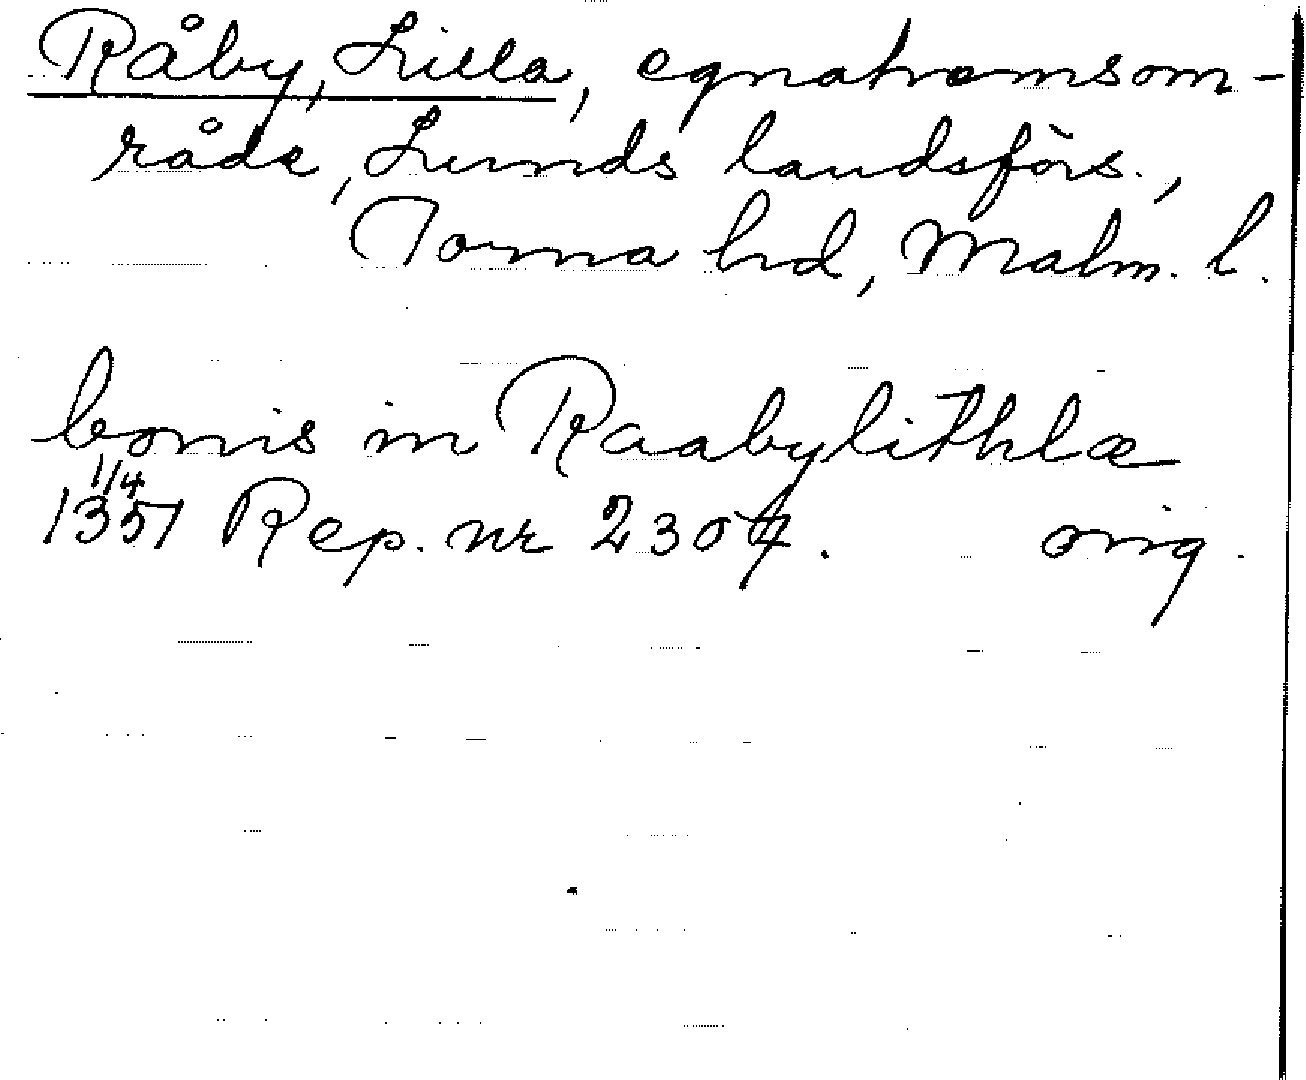 Råby, Lilla, egnahemsom-
råde, Lunds landsförs.,
Torna hd, Malm. l.
bonis in Raabylithlæ
1/4
1351 Rep. nr 2307. orig.